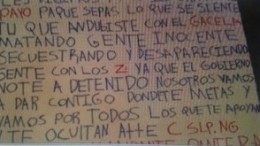 PAYO PARQUE SEPAS LO QUE SE SIENTE
TU QUE ANDUBISTE CON EL GACELA
MATANDO GENTE INOCENTE
SECUESTRANDO Y DESAPARECIENDO
GENTE CON LOS Z YA QUE EL GOBIERNO
NOTE A DETENIDO NOSOTROS VAMOS
A DAR CONTIGO DONDETE METAS Y
VAMOS POR TODOS LOS QUE TE APOYAN
Y TE OCULTAN ATTE C.S.L.P. NG